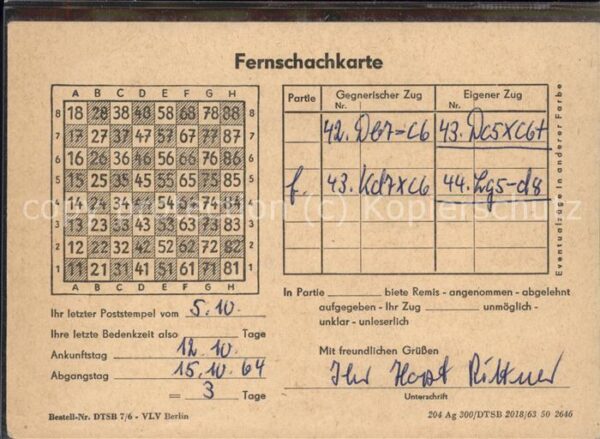 Fernschachkarte
A B C D E F G H
8 18 28 38 48 58 68 78 88 8
7 17 27 37 47 57 67 77 87 7
6 16 26 36 46 56 66 76 86 6
5 15 25 35 45 55 65 75 85 5
4 14 24 34 44 54 64 74 84 4
3 13 23 33 43 53 63 73 83 3
2 12 22 32 42 52 62 72 82 2
1 11 21 31 41 51 61 71 81 1
A B C D E F G H
Partie Gegnerischer Zug Eigener Zug
Nr. Nr.
42. Db7-c6 43. Dc5xc6+
f. 43. Kd7xc6 44. Lg5-d8
Eventualzüge in anderer Farbe
Ihr letzter Poststempel vom 5.10.
Ihre letzte Bedenkzeit also Tage
Ankunftstag 12.10.
Abgangstag 15.10.64
= 3 Tage
In Partie biete Remis - angenommen - abgelehnt
aufgegeben - Ihr Zug unmöglich -
unklar - unleserlich
Mit freundlichen Grüßen
Ihr Horst Rittner
Unterschrift
Bestell-Nr. DTSB 7/6 - VLV Berlin
204 Ag 300/DTSB 2018/63 50 2646